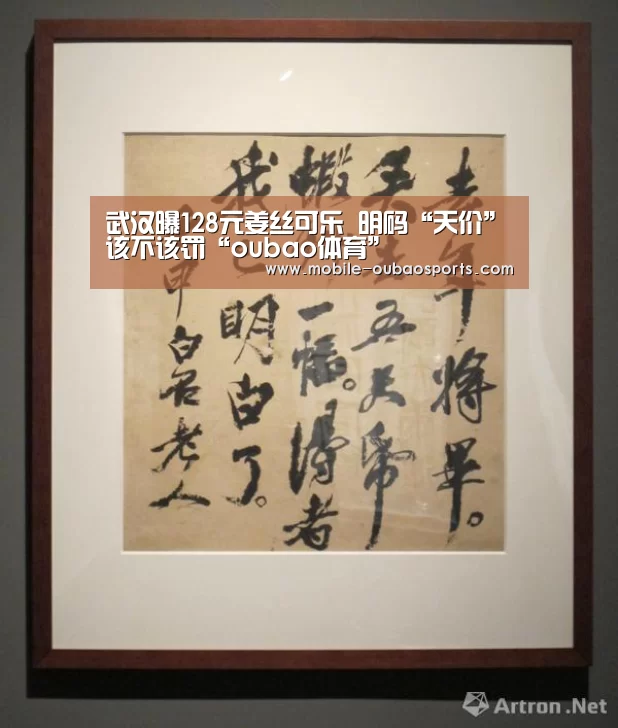 武汉曝128元姜丝可乐 明码“天价”
该不该罚“oubao体育”
www.mobile-oubaosports.com
去年將畢。
失去五尺帋
蝦一幅。得者
我已明白了。
申白石老人
Artron.Net